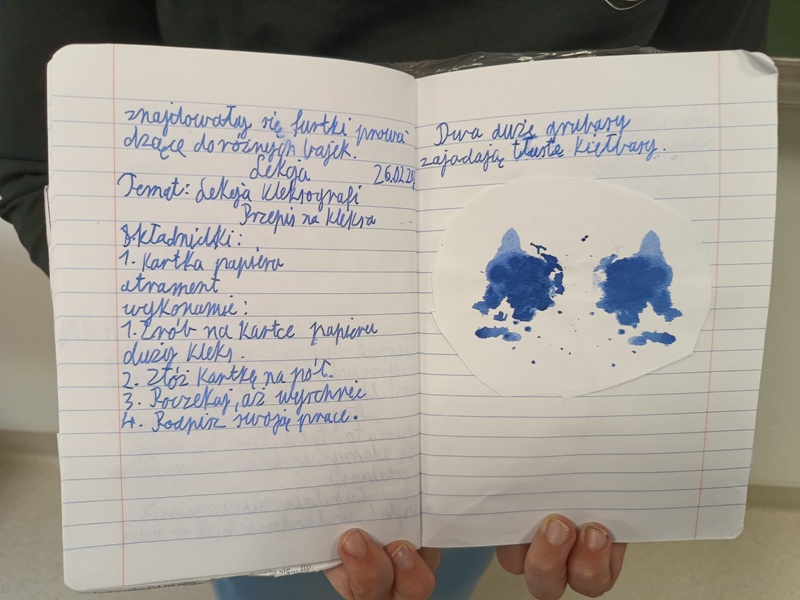 znajdowały się furtki prowa
dzące do różnych bajek.
Lekcja 26.02.2
Temat: Lekcja kleksografi
Przepis na kleksa
Składnidki:
1. Kartka papieru
atrament
wykonanie:
1. Zrób na kartce papieru
duży kleks.
2. Złóż kartkę na pół.
3. Poczekaj, aż wyschnie
4. Podpisz swoją prace.
Dwa duże grubasy
zajadają tłuste kiełbasy.